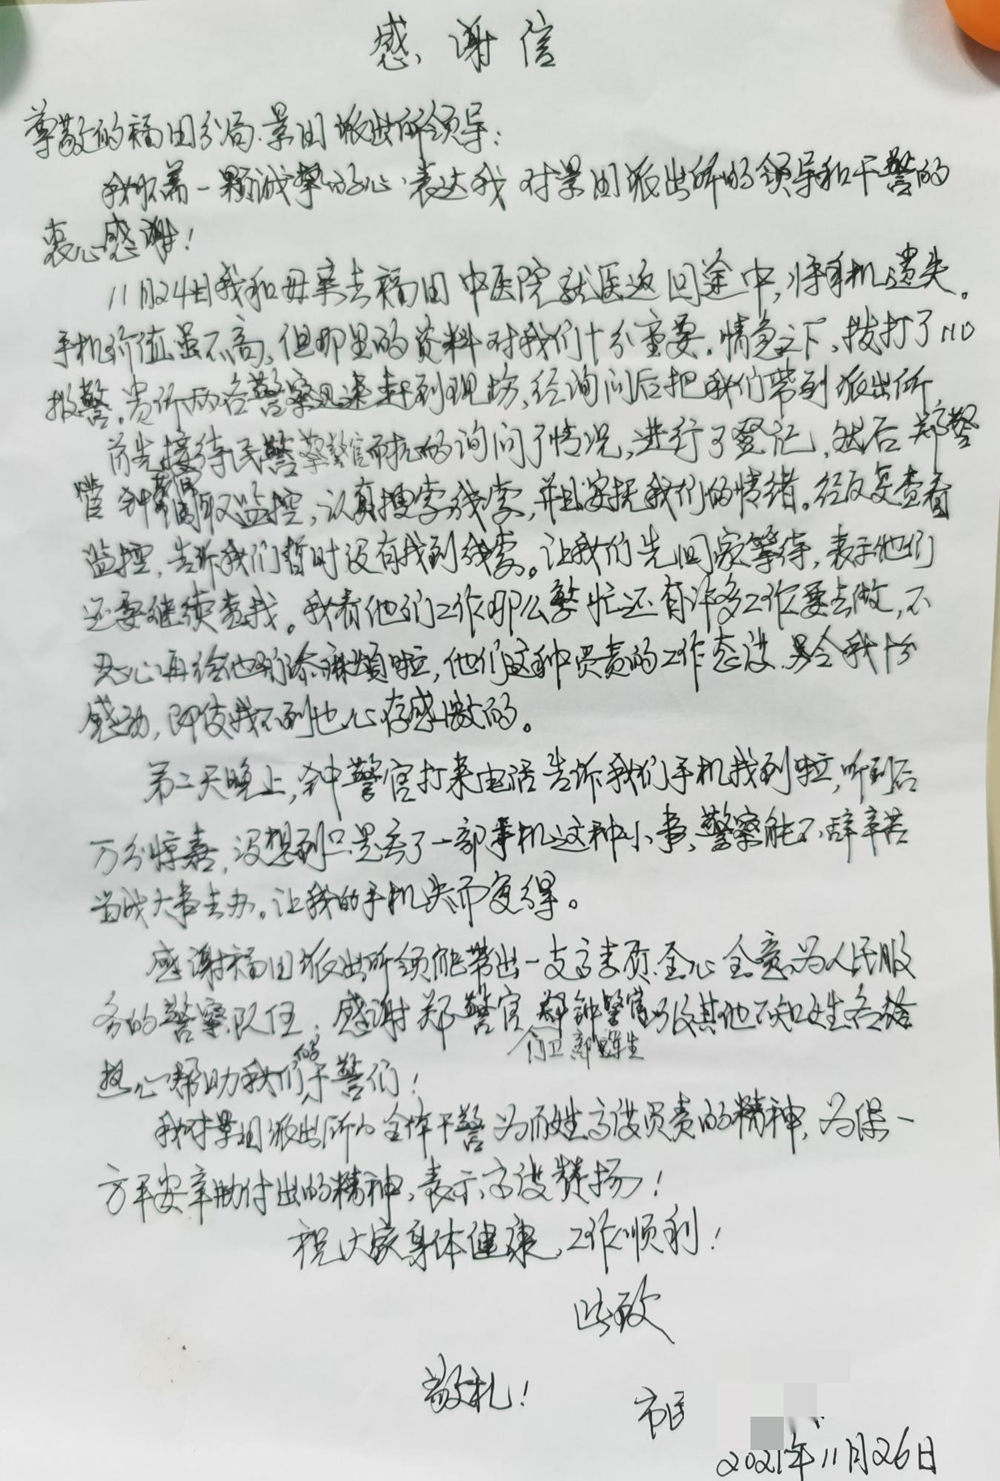 感谢信
尊敬的福田分局.景田派出所领导:
我怀着一颗诚挚的心表达我对景田派出所的领导和干警的
衷心感谢!
11月24日我和母亲去福田中医院就医返回途中,将手机遗失。
手机价值虽不高,但那里的资料对我们十分重要。情急之下,拨打了110
报警。贵所两名警察迅速赶到现场,经询问后把我们带到派出所
首先接待民警蔡警官耐心的询问了情况,进行了登记,然后郑警
官钟警官调取监控,认真搜索线索,并且安抚我们的情绪。经反复查看
监控,告诉我们暂时没有找到线索。让我们先回家等待,表示他们
还要继续查找。我看他们工作那么繁忙还有许多工作要去做,不
忍心再给他们添麻烦啦,他们这种负责的工作态度.另令我十分
感动,即使找不到也心存感激的。
第二天晚上,钟警官打来电话告诉我们手机找到啦,听到后
万分惊喜,没想到只是丢了一部手机这种小事,警察能不辞辛苦
当成大事去办。让我的手机失而复得。
感谢福田派出所领能带出一支高素质.全心全意为人民服
务的警察队伍;感谢郑警官 钟警官以及其他不知姓名给
热心帮助我们的干警们!
我对景田派出所的全体干警为百姓高度负责的精神,为保一
方平安辛勤付出的精神,表示高度赞扬!
祝大家身体健康,工作顺利!
此致
敬礼!
市民
2021年11月26日